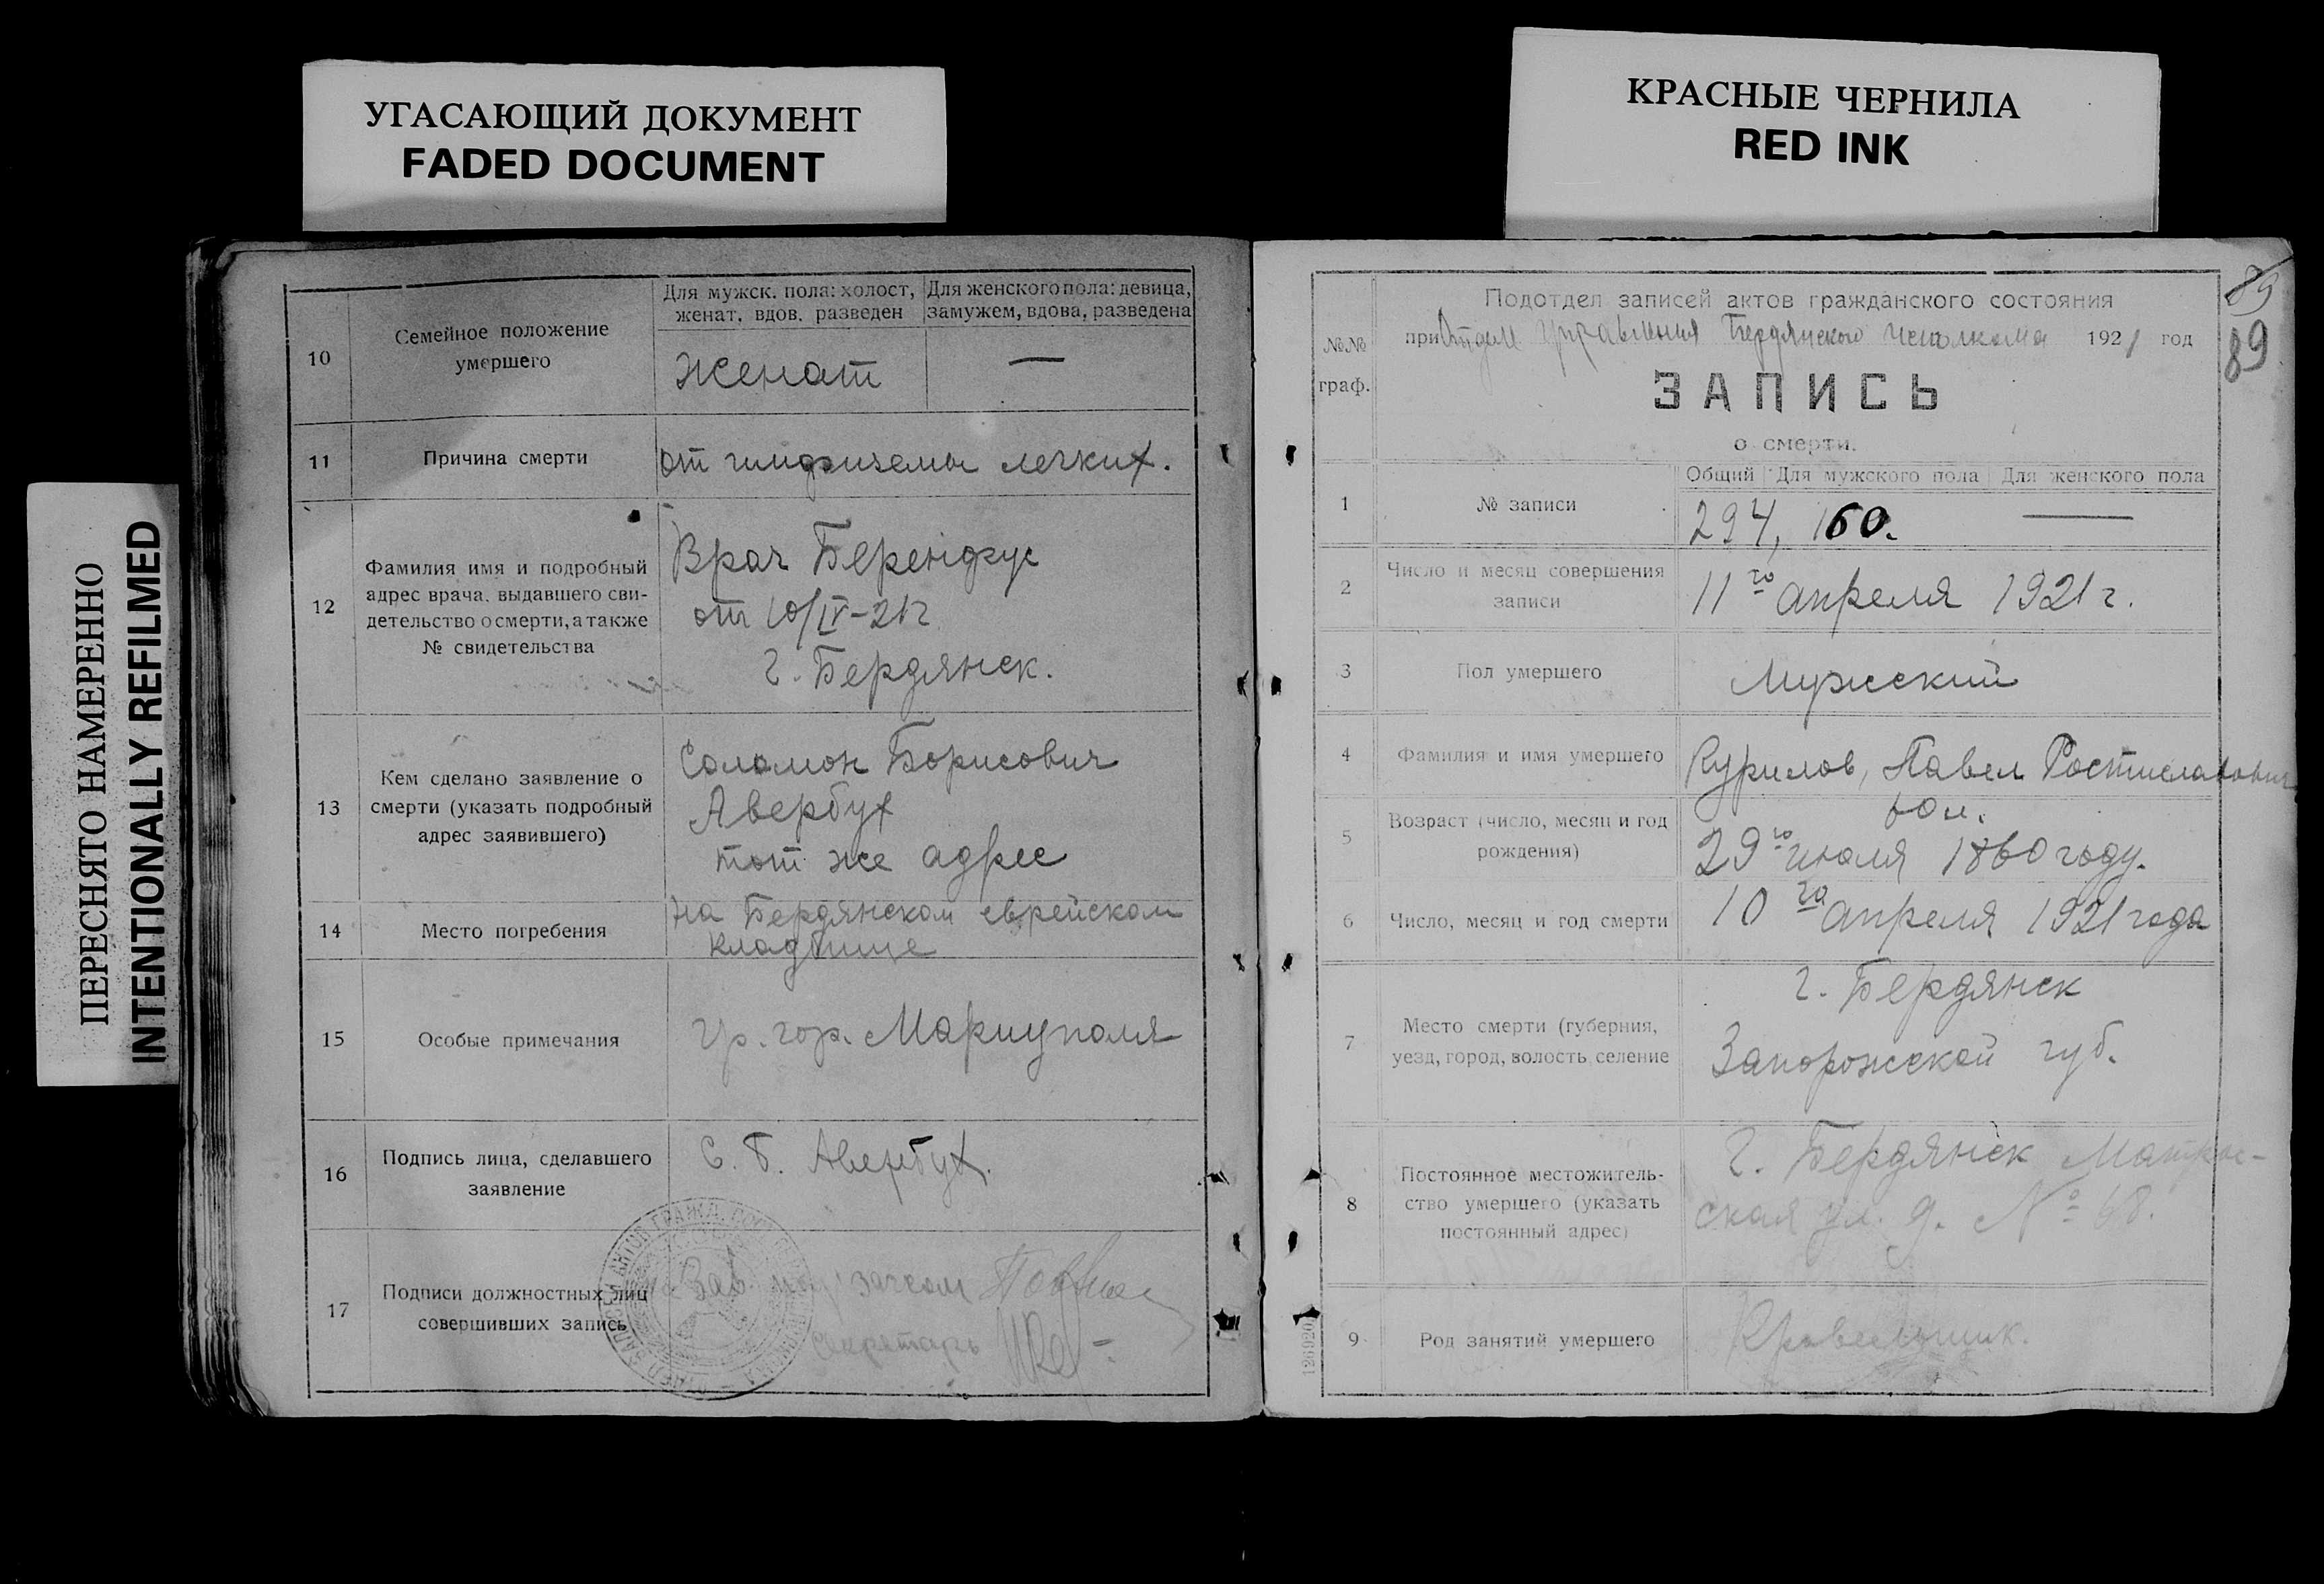 УГАСАЮЩИЙ ДОКУМЕНТ
FADED DOCUMENT
КРАСНЫЕ ЧЕРНИЛА
RED INK
ПЕРЕСНЯТО НАМЕРЕННО
INTENTIONALLY REFILMED
10
Семейное положение
умершего
Для мужск. пола: холост,
женат, вдов, разведен
Для женского пола: девица,
замужем, вдова, разведена
Женат
—
11
Причина смерти
от легких.
12
Фамилия имя и подробный
адрес врача, выдавшего сви-
детельство о смерти, а также
№ свидетельства
Врач
от 10/IV-21 г
г. Бердянск.
13
Кем сделано заявление о
смерти (указать подробный
адрес заявившего)
Соломон Борисович
Авербух
тот же адрес
14
Место погребения
на Бердянском еврейском
кладбище
15
Особые примечания
Гр. гор. Мариуполя
16
Подпись лица, сделавшего
заявление
С. Б. Авербух.
17
Подписи должностных лиц
совершивших запись
Зав.
Секретарь
89
89
№№
граф.
Подотдел записей актов гражданского состояния
при Отделе Управления Бердянского исполкома 1921 год
ЗАПИСЬ
о смерти.
1
№ записи
Общий
Для мужского пола
Для женского пола
294, 160. —
2
Число и месяц совершения
записи
11го апреля 1921 г.
3
Пол умершего
Мужский
4
Фамилия и имя умершего
Курилов, Павел Ростиславович
5
Возраст (число, месяц и год
рождения)
60 л.
29го июля 1860 году.
6
Число, месяц и год смерти
10го апреля 1921 года
7
Место смерти (губерния,
уезд, город, волость, селение
г. Бердянск
Запорожской губ.
8
Постоянное местожитель-
ство умершего (указать
постоянный адрес)
г. Бердянск Матрос-
ская ул. д. № 68.
9
Род занятий умершего
Кровельщик.
126920